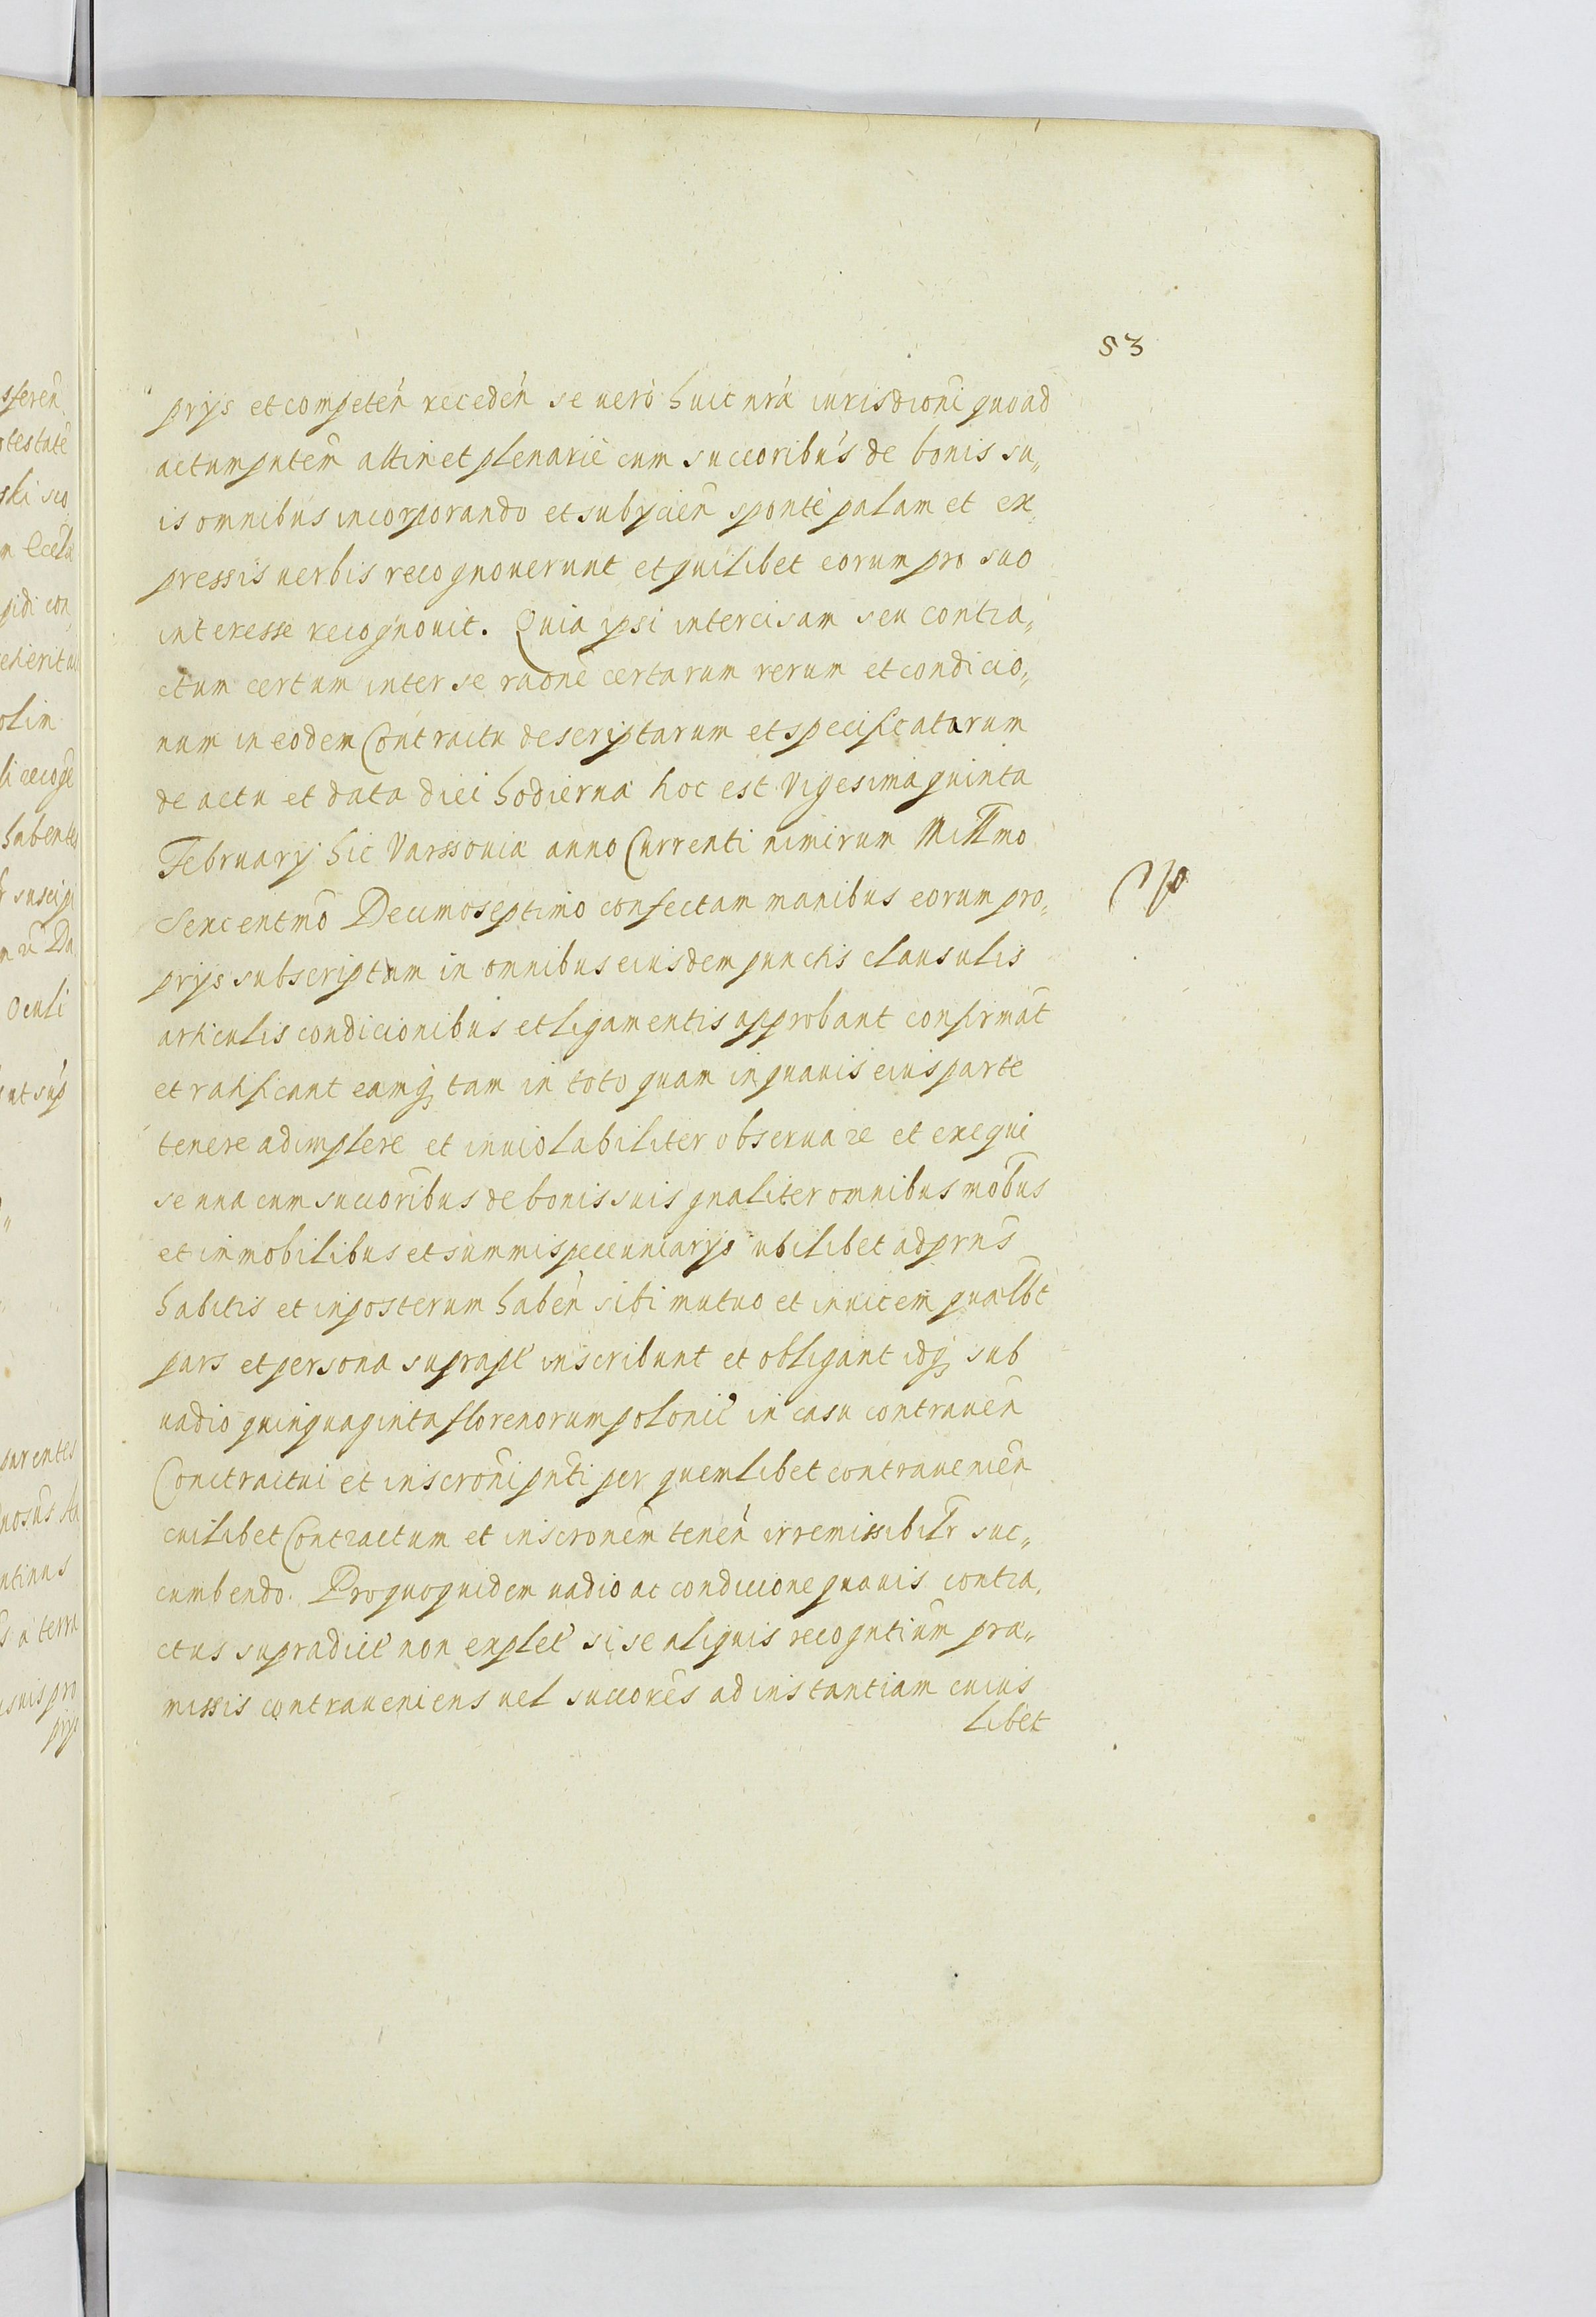 53
prijs et competen̄ receden̄ se uerò huic nr̄a iurisdioni quoad
actum pn̄tem attinet plenariè cum succoribus de bonis su„
is omnibus incorporando et subijcien̄ spontè palam et ex„
pressis uerbis recognouerunt et quilibet eorum pro suo
interesse recognouit. Quia ipsi intercisam seu contra„
ctum certum inter se raonè certarum rerum et condicio„
num in eodem Contractu descriptarum et specificatarum
de actu et data diei hodierna hoc est Vigesima quinta
February hic Varssouiæ anno Currenti nimirum Millmo
Sexcentmō Decimoseptimo confectam manibus eorum pro„
prijs subscriptam in omnibus eiusdem punctis clausulis
articulis condicionibus et ligamentis approbant confirmāt
et ratificant eamq̨ tam in toto quam in quauis eius parte
tenere adimplere et inuiolabiliter obseruare et exequi
se una cum succoribus de bonis suis gnaliter omnibus mōbus
et inmobilibus et summis pecuniarijs ubilibet ad prns̄
habitis et inposterum haben̄ sibi mutuo et inuicem quælbt
pars et persona supraȷ̄c inscribunt et obligant idq̨ sub
uadio quinquaginta florenorum polonic̄ in casu contrauen̄
Contractui et inscroni pn̄ti per quemlibet contrauenien̄
cuilibet Contractum et inscronem tenen̄ irremissibilr suc„
cumbendo. Pro quo quidem uadio ac condicione quauis contra„
ctus supradict̄ non explet̄ si se aliquis recogntium præ„
missis contraueniens uel succores ad instantiam cuius
libet